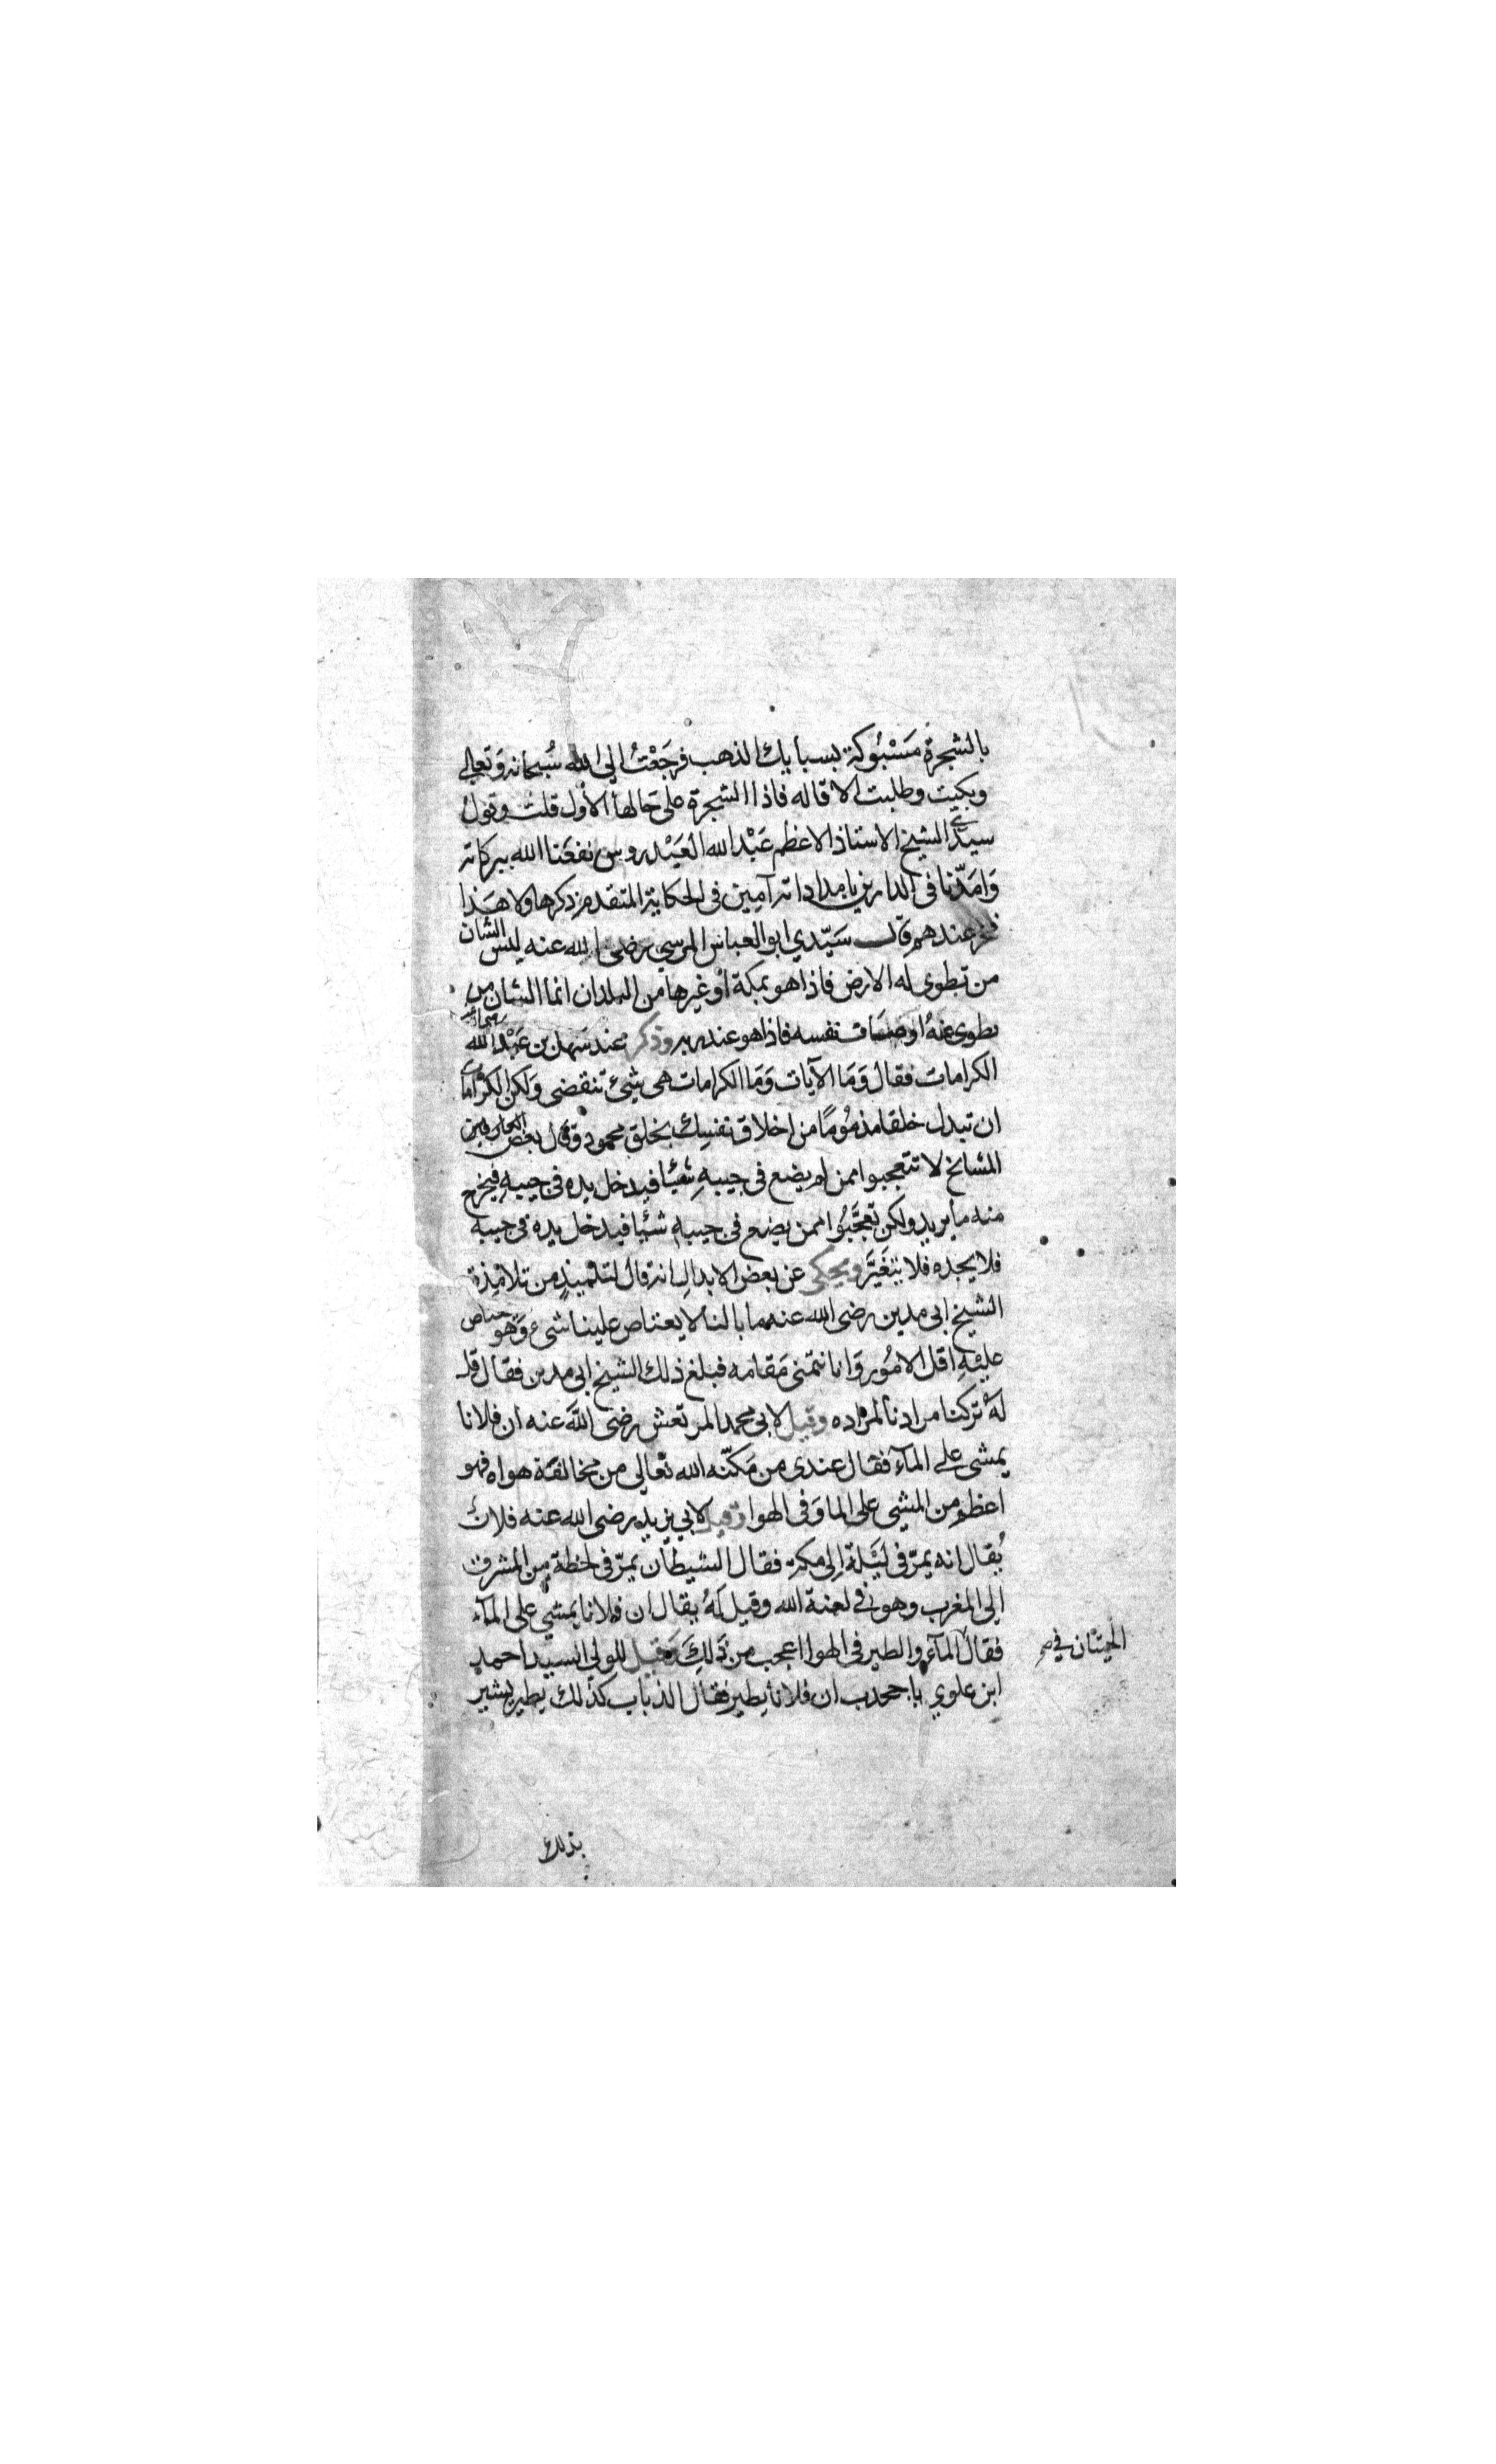 بالشجرة مَسْبُوكة بسبايك الذهب فرجَعْتُ الى الله سُبحانه وَتعالى
وبكيت وطلبت الاقاله فاذا الشجرة على حالها الأول قلت وقول
سيدي الشيخ الاستاذ الاعظم عَبْد الله العَيْدروس نفعَنا الله ببركاته
وَامَدّنا فى الدارين بامداداته آمين فى الحكاية المتقدم ذكرها ولا هَذا
فخر عندهم وقال سَيّدي ابو العباس المرسي رضى الله عنه ليس الشان
من تطوى له الارض فاذا هو بمكة أو غيرها من البلدان انما الشان من
تطوى عَنهُ اوصَاف نفسه فاذا هو عند ربه وذكر عند سَهل بن عَبْد الله
الكرامات فقال وَمَا الآيات وَمَا الكرامات هى شئ تنقضى وَلكن الكرامات
ان تبدل خلقا مذمُومًا من اخلاق نفسِك بخلق محمود وقال بعض العارفين
المشايخ لا تتعجبوا ممن لم يضع فى جيبهِ شيئا فيدخل يده فى جيبهِ فيخرج
منه ما يريد ولكن تعجَّبُوا ممن يضع فى جيبهِ شيئا فيدخل يده فى جيبه
فلا يجده فلا يتغَيَّر ويحكى عن بعض الابدال انه قال لتلميذٍ من تلامِذة
الشيخ ابى مدين رضى الله عنه ما بالنا لا يعتاص علينا شئ وَهو يعتاص
عليهِ اقل الامُور وَانا نتمنى مَقامه فبلغ ذلك الشيخ ابى مدين فقال قل
لهُ تركنا مرادنا لمراده وقيل لابى محمد المرتعش رضى الله عنه ان فلانا
يمشى على المآء فقال عندى من مَكنّه الله تعالى من مخالفة هواه فهو
اعظم من المشي على الما وَفى الهوا وقيل لابي يزيد رضى الله عنه فلان
يُقال انه يمرّ فى ليَلة إلى مكة فقال الشيطان يمرّ فى لحظة من المشرق
الى المغرب وهو في لعنة الله وقيل لهُ يقال ان فلانا يمشي على المآء
فقال المآء والطير فى الهوا اعجب من ذلِكَ وَقيل للولي السيد احمد
الحيتان في
ابن علوي باجحدب ان فلانا يطير فقال الذباب كذلك يطير يشير
بذلك